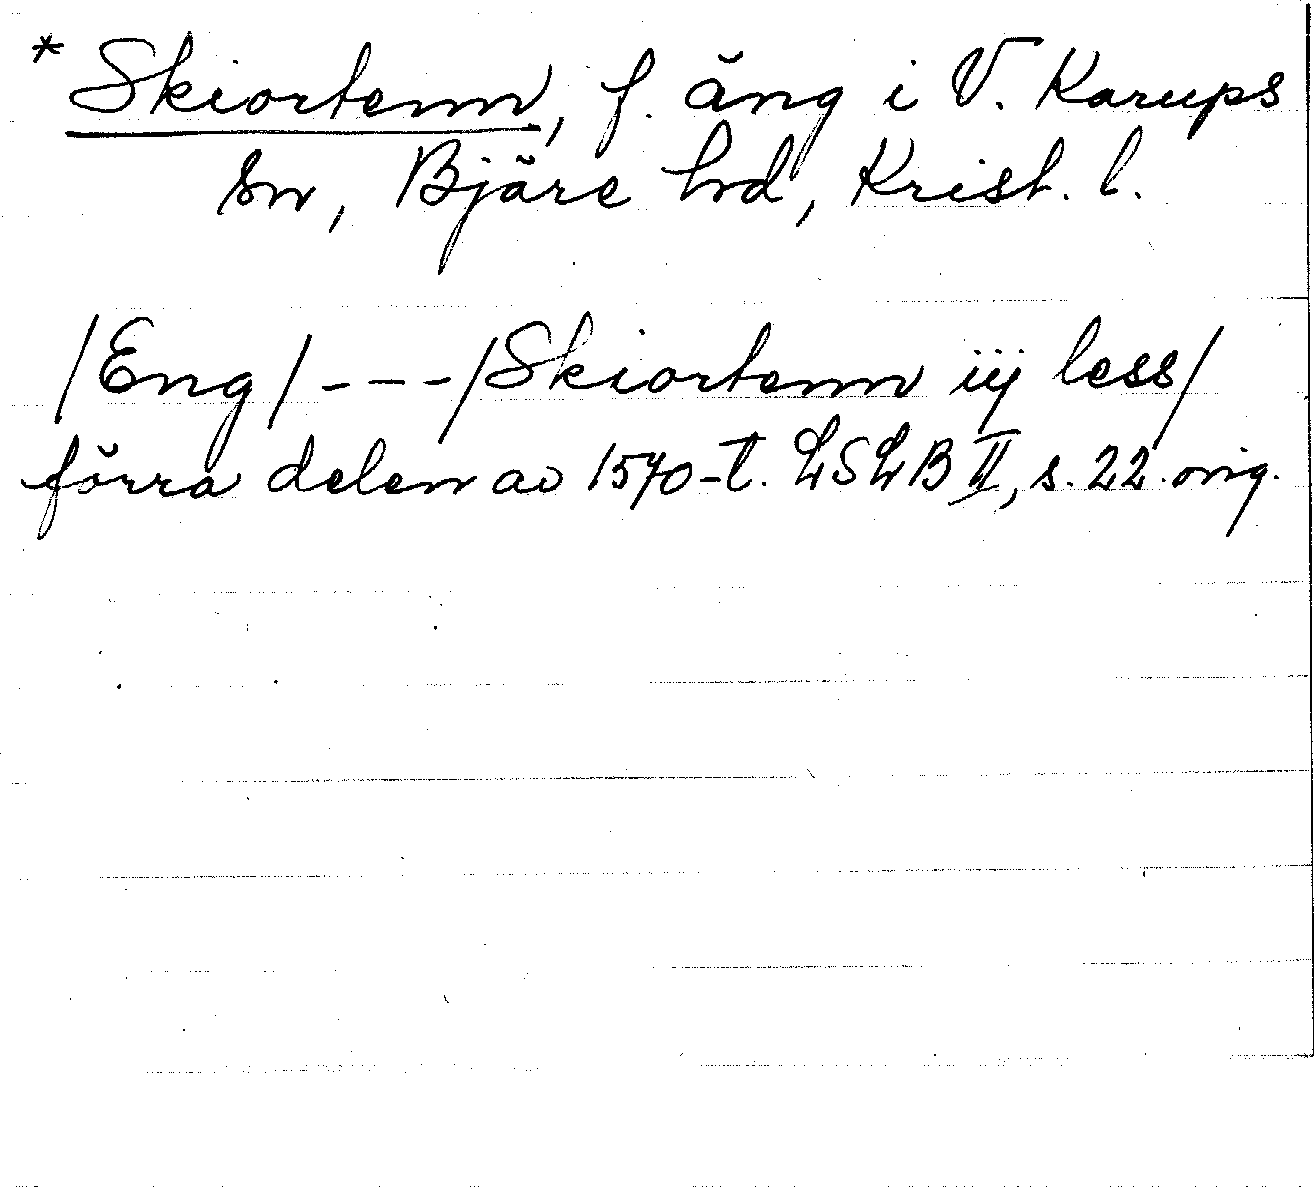 * Skiortenn, f. äng i V. Karups
sn, Bjäre hrd, Krist. l.
/Eng/---/Skiortenn iij less/
förra delen av 1570-t. LSLB II, s. 22 orig.